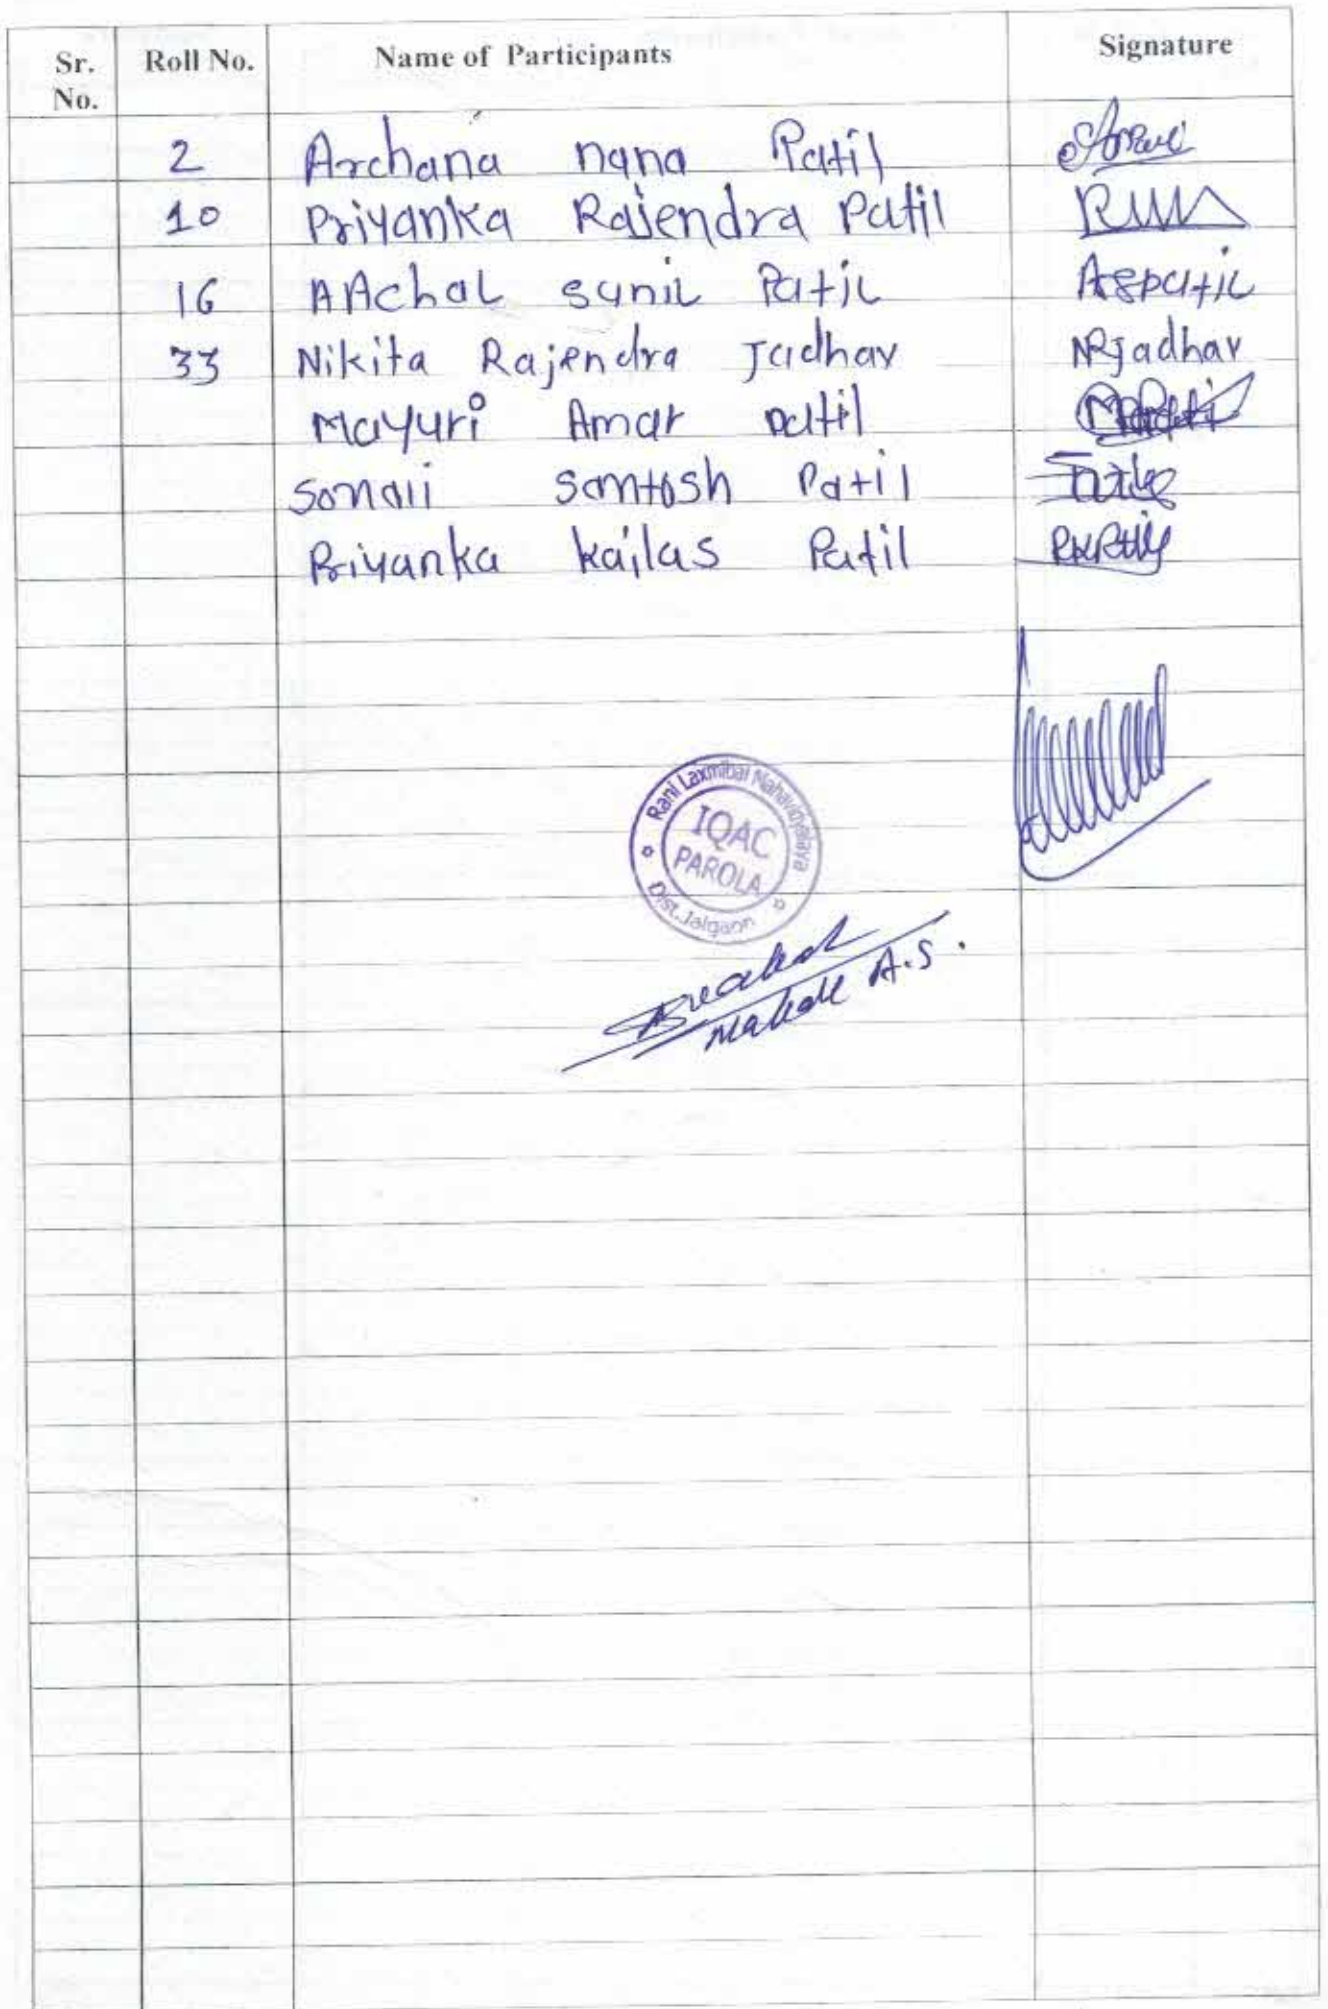 Sr. No. Roll No. Name of Participants Signature
2 Archana nana Patil
10 Priyanka Rajendra Patil
16 AAchal sunil Patil ASpatil
33 Nikita Rajendra Jadhav NRJadhav
Mayuri Amar patil
Sonali Santosh Patil
Priyanka kailas Patil
Rani Laxmibai Mahavidyalaya
IQAC
PAROLA
Dist. Jalgaon
A.S.